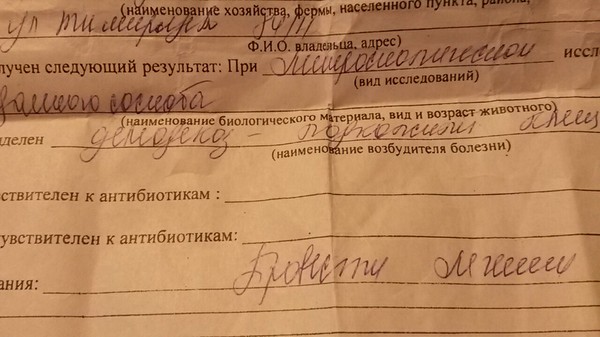 (наименование хозяйства, фермы, населенного пункта, района,
ул тимирязева
Ф.И.О. владельца, адрес)
лучен следующий результат: При микроскопической иссл
(вид исследований)
данного соскоба
(наименование биологического материала, вид и возраст животного)
делен демодекоз - подкожный клещ
(наименование возбудителя болезни)
ствителен к антибиотикам :
увствителен к антибиотикам:
ания: Бровести